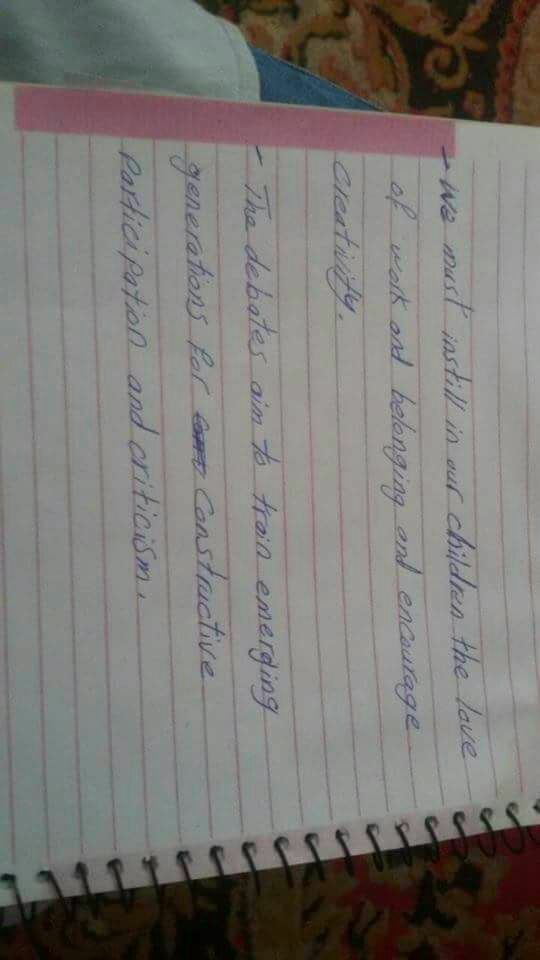 - We must instill in our children the love
of work and belonging and encourage
creativity.
- The debates aim to train emerging
generations for constructive
participation and criticism.